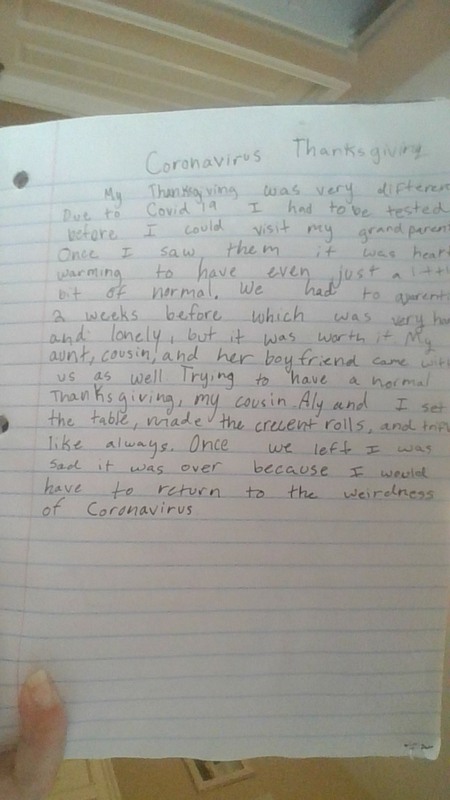 Coronavirus Thanksgiving
My Thanksgiving was very differen
Due to Covid 19 I had to be tested
before I could visit my grandparen
Once I saw them it was heart
warming to have even just a littl
bit of normal. We had to
2 weeks before which was very ha
and lonely, but it was worth it My
aunt, cousin, and her boyfriend came with
us as well Trying to have a normal
Thanksgiving, my cousin Aly and I set
the table, made the crecent rolls, and trifl
like always. Once we left I was
sad it was over because I would
have to return to the weirdness
of Coronavirus